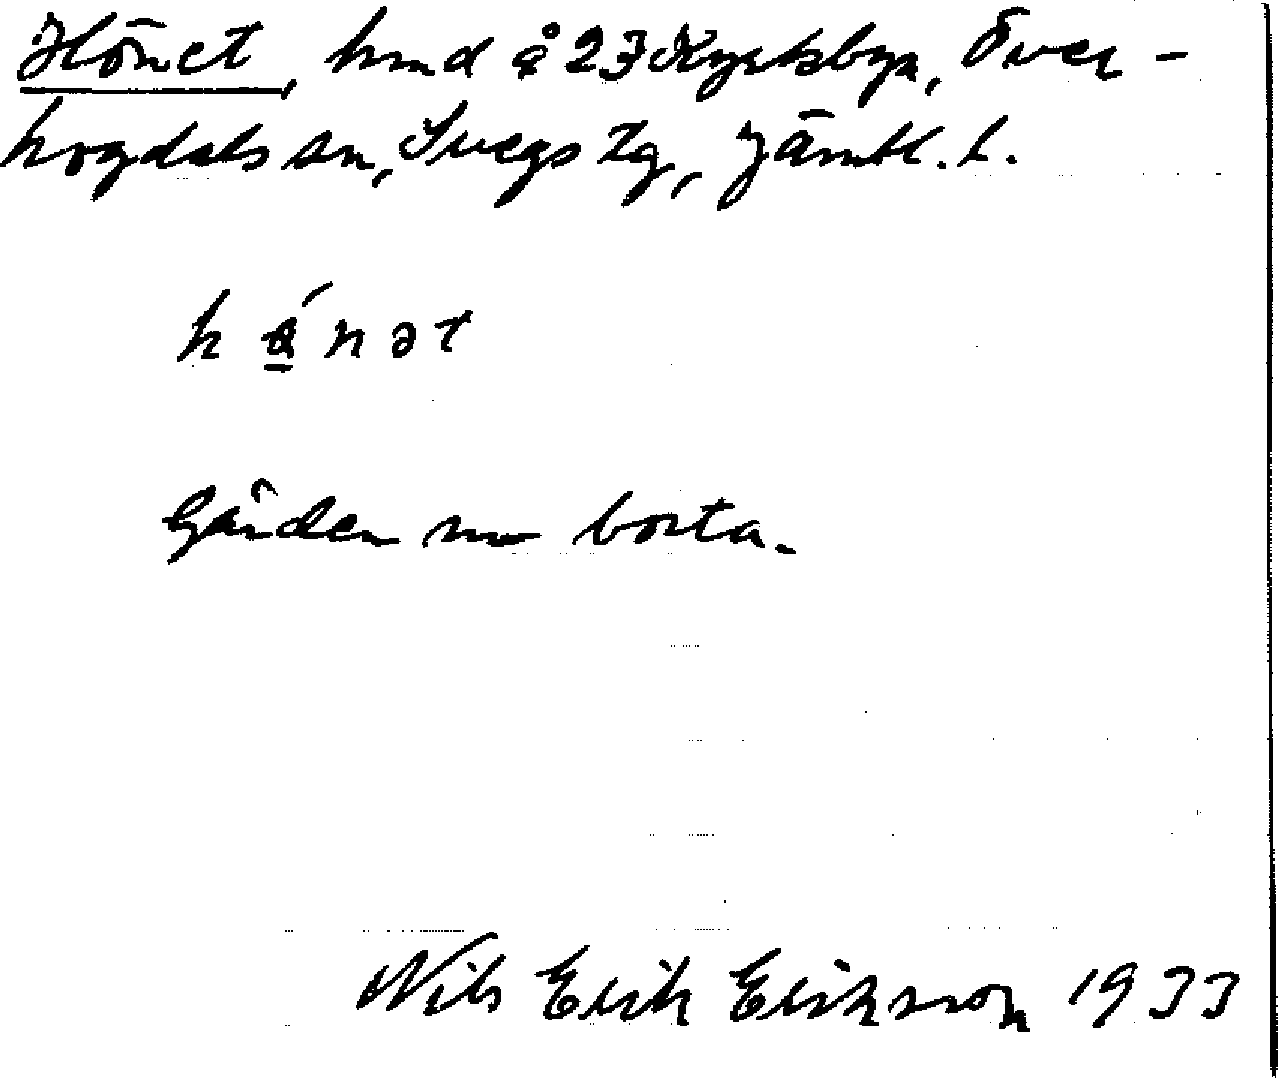 Hönet, hmd å 23 Kyrkbyn, Över-
hogdals sn, Svegs tg, Jämtl. l.
h ǿ n ə t
Gården nu borta.
Nils Erik Eriksson 1933